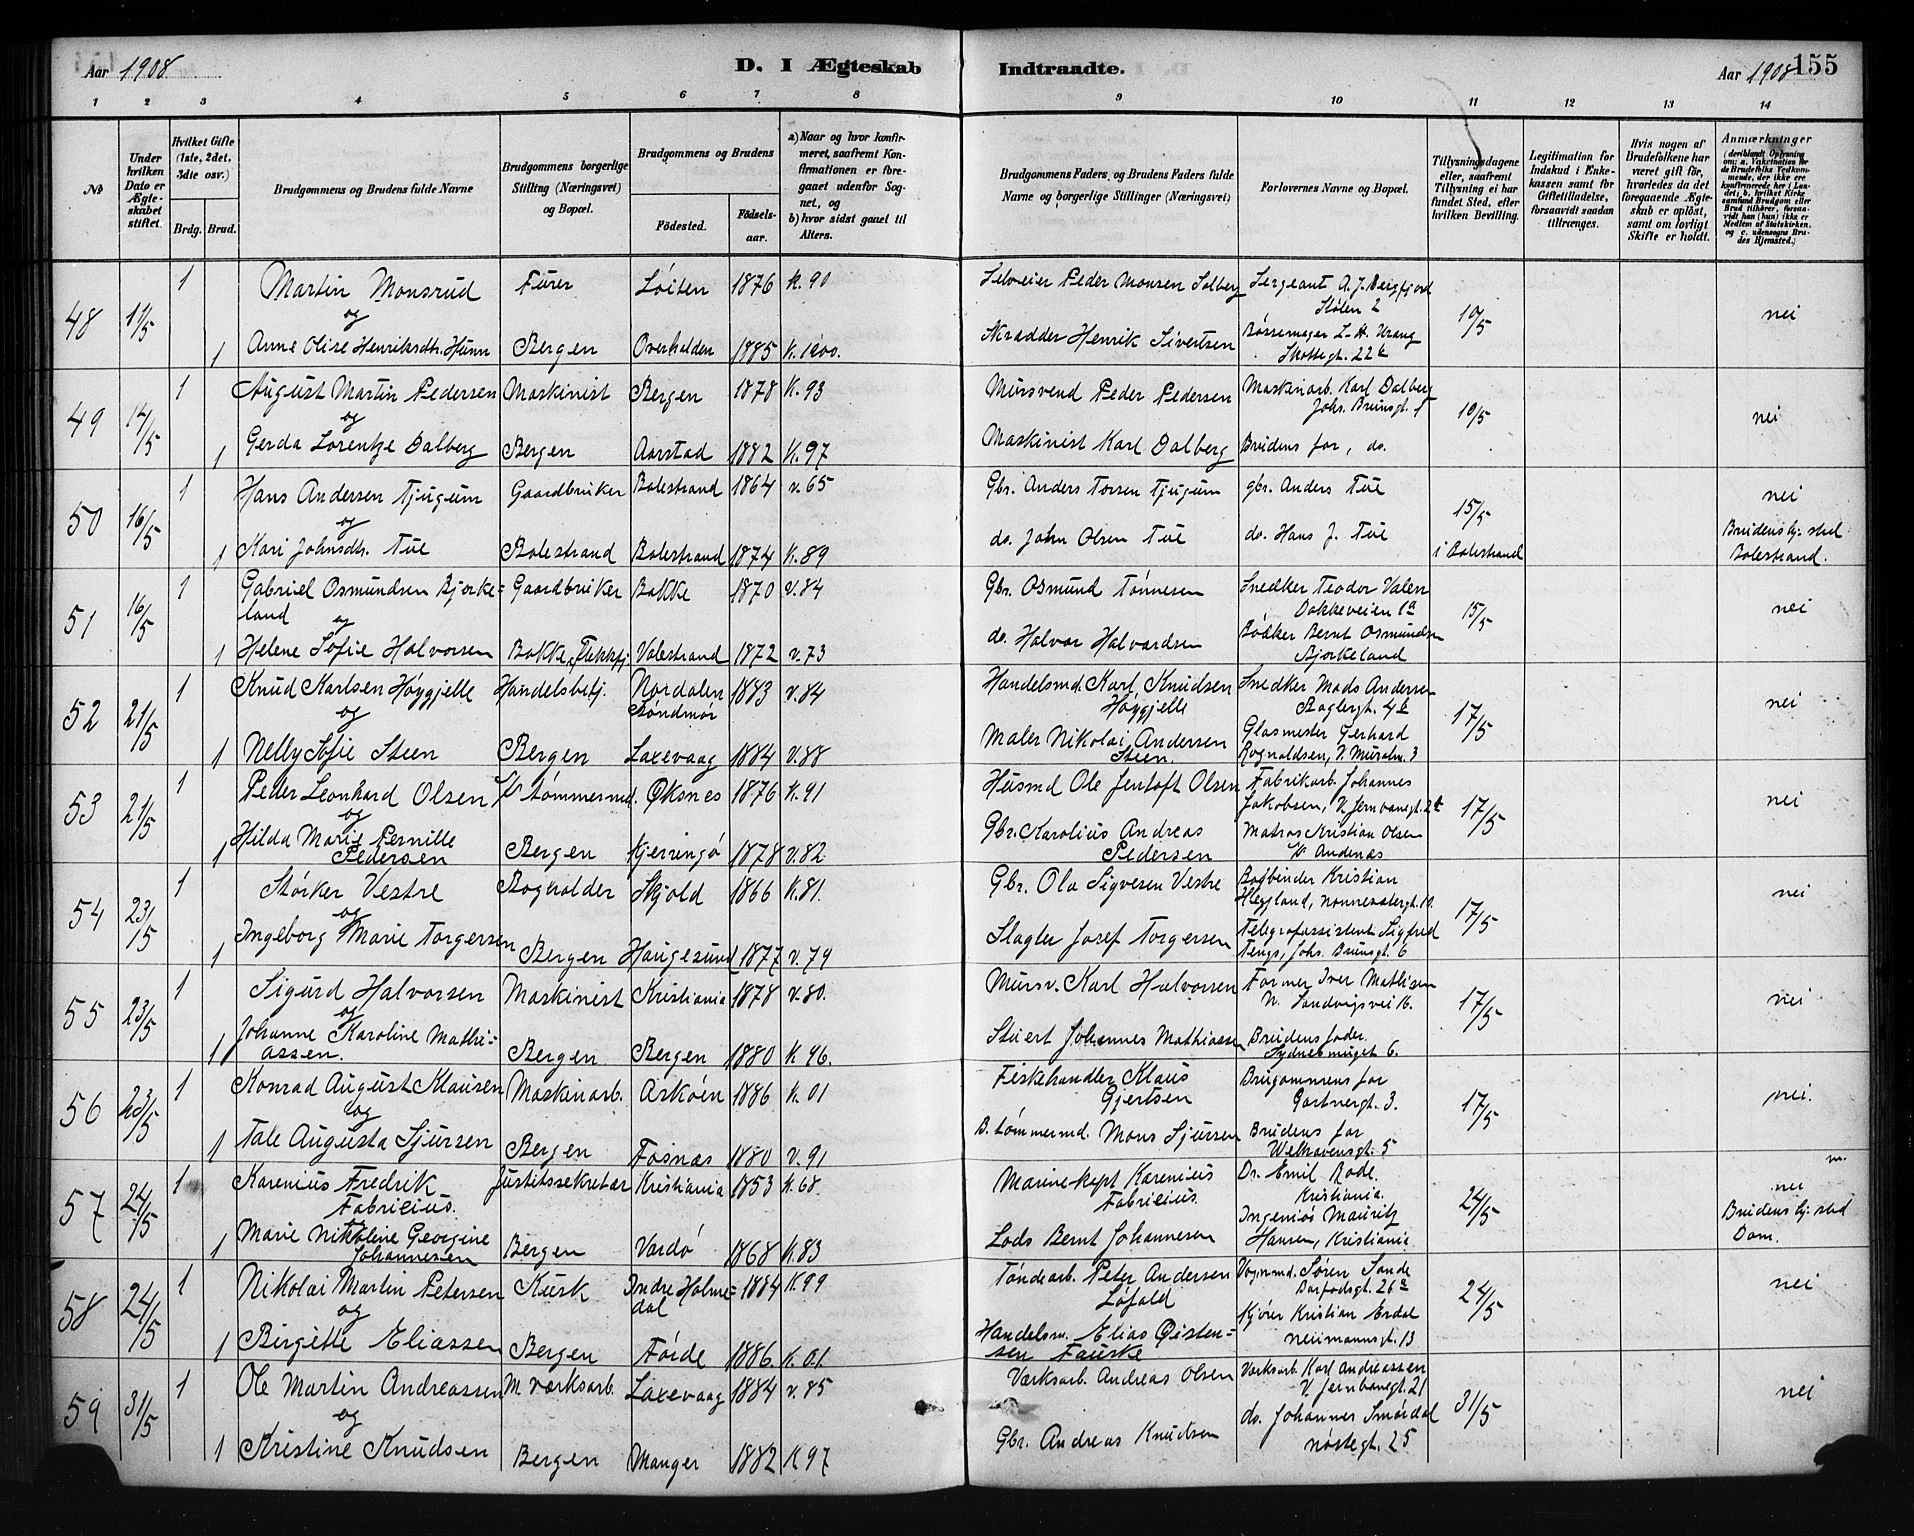 Aar 1908
D. I Ægteskab Indtraadte.
Aar 1908 155
1 2 3 4 5 6 7 8 9 10 11 12 13 14
No
Under hvilken Dato er Ægteskabet stiftet.
Hvilket Gifte (1ste, 2det, 3die osv.)
Brdg. Brud.
Brudgommens og Brudens fulde Navne
Brudgommens borgerlige Stilling (Næringsvei) og Bopæl.
Brudgommens og Brudens
Födested.
Födsels-aar.
a) Naar og hvor konfirmeret, saafremt Konfirmationen er foregaaet udenför Sognet, og
b) hvor sidst gaaet til Alters.
Brudgommens Faders og Brudens Faders fulde Navne og borgerlige Stillinger (Næringsvei)
Forlovernes Navne og Bopæl.
Tillysningsdagene eller, saafremt Tillysning ei har fundet Sted, efter hvilken Bevilling.
Legitimation för Indskud i Enkekassen samt för Giftetilladelse, forsaavidt saadan tiltrænges.
Hvis nogen af Brudefolkene har været gift för, hvorledes da det foregaaende Ægteskab er oplöst, samt om lovligt Skifte er holdt.
Anmærkninger (deriblandt Oplysning om: a. Vakcination för de Brudefolks Vedkommende, der ikke ere konfirmerede her i Landet; b. hvilket Kirkesamfund Brudgom eller Brud tilhörer, forsaavidt han (hun) ikke er Medlem af Statskirken, og c. udensogns Brudes Hjemsted.)
48 11/5 1 Martin Monsrud Furer Löiten 1876 K. 90 Selveier Peder Monsen Solberg Sergeant A. J. Bergfjord Stölen 2 10/5 nei
og
1 Anne Olise Henriksdtr. Hunn Bergen Overhalden 1885 K. 1900. Skrædder Henrik Sivertsen Bössemager L. H. Urang Skottegt. 22 b
49 14/5 1 August Martin Pedersen Maskinist Bergen 1878 K. 93 Mursvend Peder Pedersen Maskinarb. Karl Dalberg Johs. Brunsgt. 5 10/5 nei
og
1 Gerda Lorentze Dalberg Bergen Aarstad 1882 K. 97 Maskinist Karl Dalberg Brudens far, do.
50 16/5 1 Hans Andersen Tjugum Gaardbruker Balestrand 1864 v. 65 Gbr. Anders Torsen Tjugum gbr. Anders Tue 15/5 i Balestrand nei
og
1 Kari Johnsdtr. Tue Balestrand Balestrand 1874 K. 89 do. John Olsen Tue do. Hans J. Tue Brudens hj. sted Balestrand.
51 16/5 1 Gabriel Osmundsen Bjorkeland Gaardbruker Bakke 1870 v. 84 Gbr. Osmund Tönnesen Snedker Teodor Valen Dokkeveien 1a 15/5 nei
og
1 Helene Sofie Halvorsen Bakke, Flekkfj. Valestrand 1872 v. 73 do. Halvor Halvardsen Bödker Bernt Osmundsen Bjorkeland
52 21/5 1 Knud Karlsen Höygjelle Handelsbetj. Nordalen Söndmör 1883 v. 84 Handelsmd. Karl Knudsen Höygjelle Snedker Mads Andersen Baglergt. 4 b 17/5 nei
og
1 Nelly Sofie Steen Bergen Laxevaag 1884 v. 88 Maler Nikolai Andersen Steen. Glasmester Gerhard Rognaldsen, N. Muralm. 3
53 21/5 1 Peder Leonhard Olsen tömmermd. Öksnes 1876 K. 91 Husmd Ole Jentoft Olsen Fabrikarb. Johannes Jakobsen, V. Jernbanegt. 17/5 nei
og
1 Hilda Marie Pernille Pedersen Bergen Kjerringö 1878 v. 82 Gbr. Karolius Andreas Pedersen Matros Kristian Olsen Andenæs
54 23/5 1 Störker Vestre Bogholder Skjold 1866 K. 81. Gbr. Ola Sigvesen Vestre Bogbinder Kristian Hegland, Nonnesætergt. 17/5 nei
og
1 Ingeborg Marie Torgersen Bergen Haugesund 1877 v. 79 Slagter Josef Torgersen Telegrafassistent Sigfred Tengs, Johs. Brunsgt. 6
55 23/5 1 Sigurd Halvorsen Maskinist Kristiania 1878 v. 80. Mursv. Karl Halvorsen Former Iver Mathisen N. Sandvigsvei 16. 17/5 nei
og
1 Johanne Karoline Mathiassen. Bergen Bergen 1880 K 96. Stuert Johannes Mathiassen Brudens fader Sydnessmuget 6.
56 23/5 1 Konrad August Klausen Maskinarb. Asköen 1886 K. 01 Fiskehandler Klaus Gjertsen Brugommens far Gartnergt. 3. 17/5 nei.
og
1 Tale Augusta Sjursen Bergen Fosnæs 1880 v. 91 B. tömmermd. Mons Sjursen Brudens far Welhavensgt. 5
57 24/5 1 Karenius Fredrik Fabricius. Justitssekretær Kristiania 1853 K. 68. Marinekapt Karenius Fabricius. Dr. Emil Rode. Kristiania. 24/5 nei
1 Marie Nikoline Georgine Johannesen Bergen Vardö 1868 K. 83 Lods Bernt Johannesen Ingeniör Mauritz Hansen, Kristiania Brudens hj. sted Dom.
58 24/5 1 Nikolai Martin Petersen Kusk Indre Holmedal 1884 K 99 Töndearb. Peter Andersen Löfald Vognmd. Sören Sande Barfodsgt. 26 a 24/5 nei
og
1 Birgitte Eliassen Bergen Förde 1886. K. 01. Handelsm. Elias Öistensen Fauske Kjörer Kristian Erdal Neumannsgt. 13
59 31/5 1 Ole Martin Andreassen M. Værksarb. Laxevaag 1884 v. 85 Værksarb. Andreas Olsen Værksarb. Karl Andreassen V. Jernbanegt. 21 31/5 nei
og
1 Kristine Knudsen Bergen Manger 1882 K 97 Gbr. Andreas Knudsen do. Johannes Smördal Nöstegt. 25